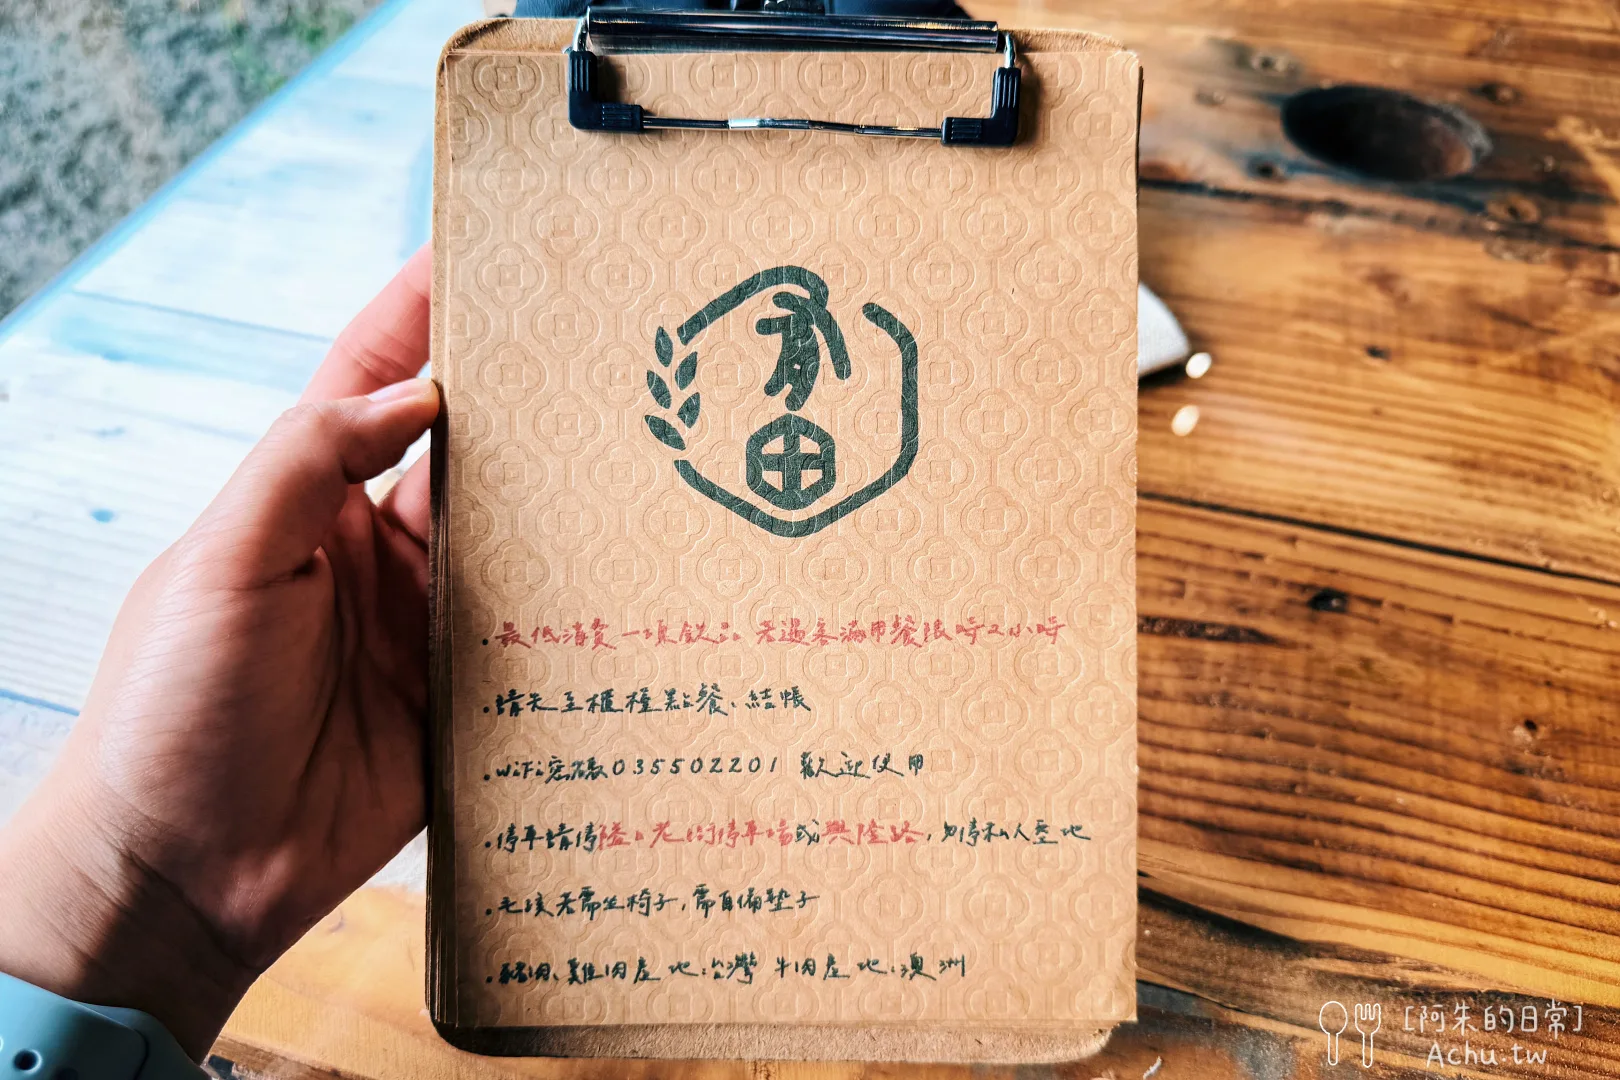 田
·最低消費一項飲品 若過客滿用餐限時2小時
·請先至櫃檯點餐、結帳
·WiFi密碼035502201 歡迎使用
·停車請停隘口老街停車場或興隆路,勿停私人空地
·毛孩若需坐椅子,需自備墊子
·豬肉、雞肉產地:台灣 牛肉產地:澳洲
[阿朱的日常]
Achu.tw